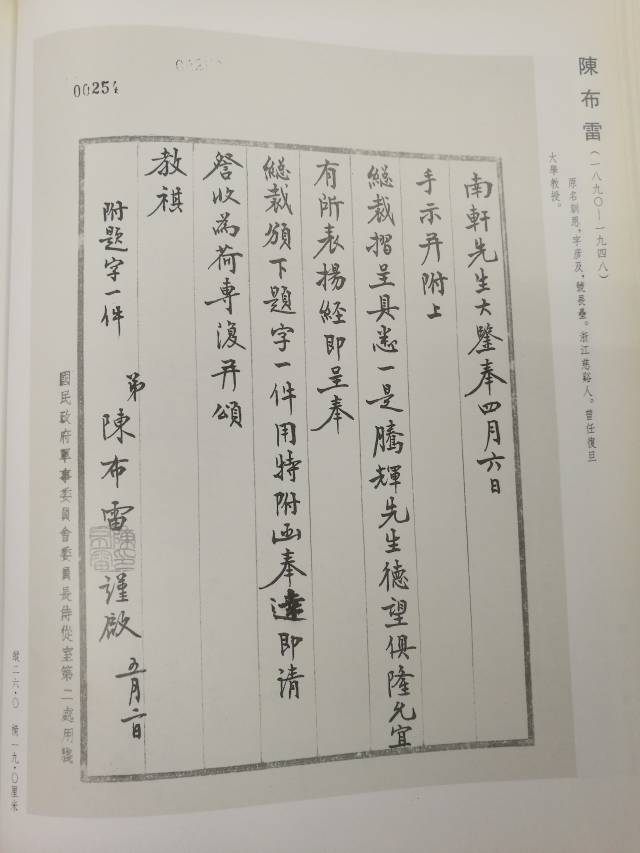 陳布雷(一八九〇—一九四八)
原名訓恩,字彥及,號畏壘。浙江慈谿人。曾任復旦
大學教授。
00254
南軒先生大鑒奉四月六日
手示并附上
總裁摺呈具悉一是騰輝先生德望俱隆允宜
有所表揚經即呈奉
總裁頒下題字一件用特附函奉達即請
詧收為荷專復并頌
教祺
弟陳布雷謹啟 五月二日
附題字一件
國民政府軍事委員會委員長侍從室第二處用箋
縱二六·〇 橫一九·〇厘米